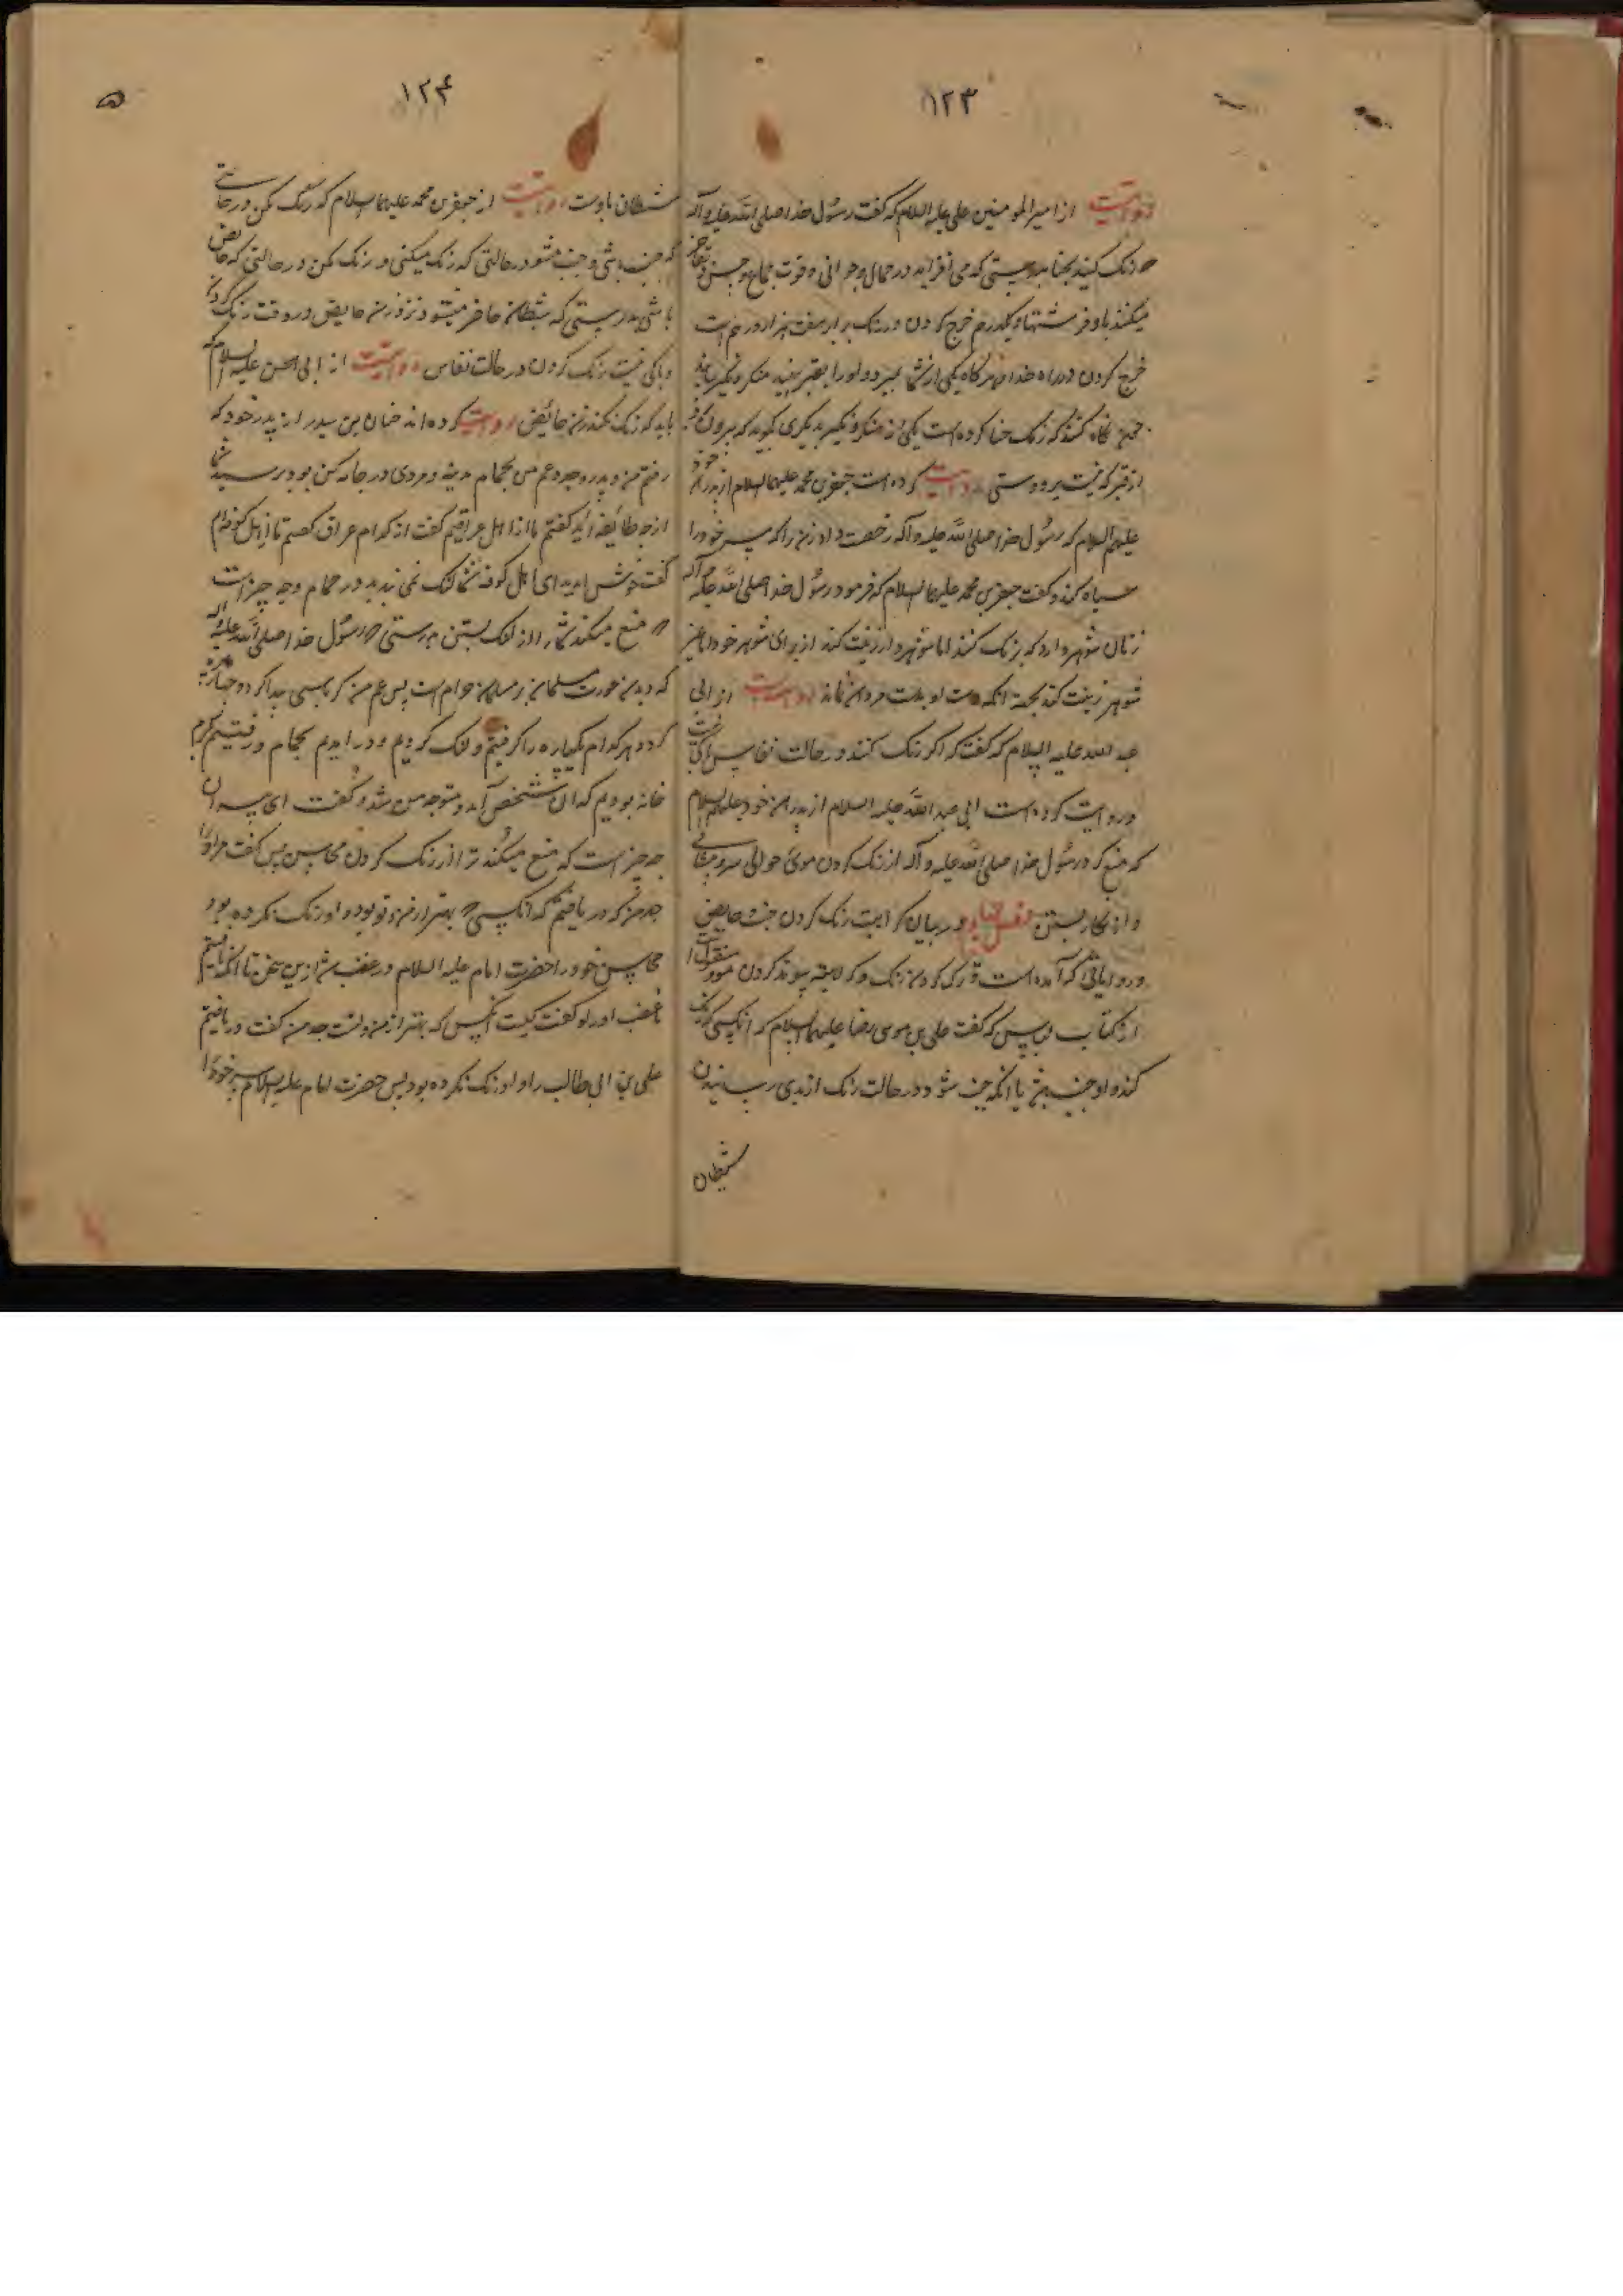 ۱۲۳
روایت از امیر المومنین علی علیه السلام که گفت رسول خدا صلی الله علیه وآله
که رنک کنید بحنا بدرستی که می افزاید در جمال و جوانی و قوت جماع و حسن و تفاخر
میکنند باو فرشتها و یکدرم خرج کردن در رنک برابر هفت هزار درم است
خرج کردن در راه خدا هرگاه یکی از شما بمیرد و اورا بقبر منکر و نکیر بیاید
نگاه کنند که رنک حنا کرده است یکی از منکر و نکیر بدیگری گوید که بیرون
از قبر که نیست برو دستی روایت کرده است جعفر بن محمد علیهما السلام از پدران خود
علیهم السلام که رسول خدا صلی الله علیه وآله رخصت داد زن را که سر خود را
سیاه کند و گفت جعفر بن محمد علیهما السلام که فرمود رسول خدا صلی الله علیه وآله
زنان شوهردار که رنک کنند اما شوهردار زینت کند از برای شوهر خود اما غیر
شوهر زینت کند بجهة انکه دست او بدست مردان نماند روایت از ابی
عبد الله علیه السلام که گفت که اگر رنک کنند در حالت نفاس باکی نیست
و روایت کرده است ابی عبد الله علیه السلام از پدران خود علیهم السلام
که منع کرد رسول خدا صلی الله علیه وآله از رنک کردن موی حوالی سر و پیشانی
و از نگار بستن فصل چهارم در بیان کراهیت رنک کردن جنب و حایض
و روایاتی که آمده است در ترک کردن رنک و کراهیت پیوند کردن مو منقولست
از کتاب لباس که گفت علی بن موسی رضا علیهما السلام که انکسی که رنک
کند و او جنب یا انکه جنب شود در حالت رنک از بدی رسانیدن
شیطان
۱۲۴
شیطان باوست روایت از جعفر بن محمد علیهما السلام که رنک مکن در حالتی
که جنب باشی و جنب مشو در حالتی که رنک میکنی و رنک مکن در حالتی که حایض
باشی بدرستی که شیطان حاضر میشود نزد زن حایض در وقت رنک کردن
و باکی نیست رنک کردن در حالت نفاس روایت از ابی الحسن علیه السلام که
باید که رنک نکند زن حائض روایت کرده اند حنان بن سدیر از پدر خود که
رفتم من و پدر و جد و عم من بحمام مدینه و مردی در جامه کن بود پرسید شما
از چه طائفه اید گفتم ما از اهل عراقیم گفت از کدام عراق گفتم ما از اهل کوفه ام
گفت خوش امدید ای اهل کوفه شما لنک نمی بندید در حمام و چه چیز است
که منع میکند شما را از لنک بستن بدرستی که رسول خدا صلی الله علیه وآله
که دیدن عورت مسلمان بر مسلمان حرام است پس عم من کرباسی پیدا کرد و چهار پاره
کرد و هر کدام یکپاره را گرفتیم و لنک کردیم و در امدیم بحمام و رفتیم در گرم
خانه بودیم که ان شخص آمد و متوجه من شد و گفت ای پسر ان
چه چیز است که منع میکند ترا از رنک کردن محاسن پس گفت مر او را
جد من که دریافتم که انکسی که بهتر از من و تو بود و او رنک نکرده بود
محاسن خود را حضرت امام علیه السلام در غضب شد ازین سخن تا انکه یافتیم
غضب او را و گفت کیست انکس که بهتر از من است جد من گفت دریافتم
علی بن ابی طالب را و او رنک نکرده بود پس حضرت امام علیه السلام سر خود را